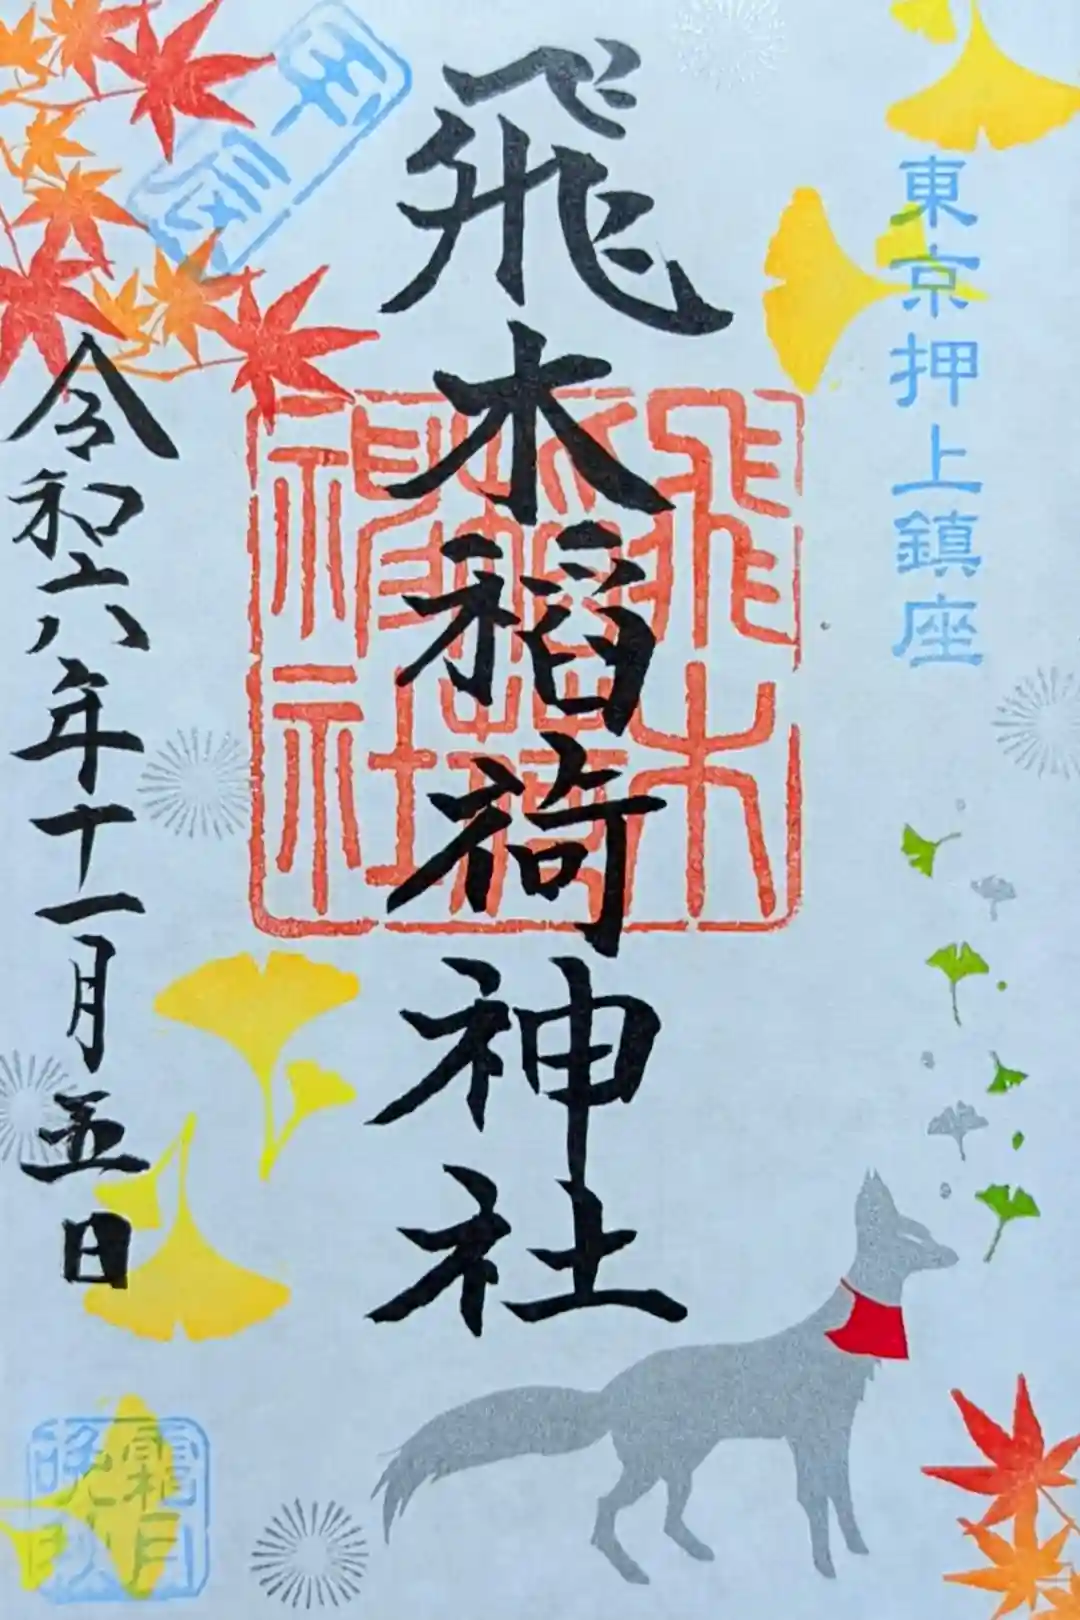 東京押上鎮座
飛木稲荷神社
飛木
神社
甲辰
令和六年十一月五日
霜月
晩秋